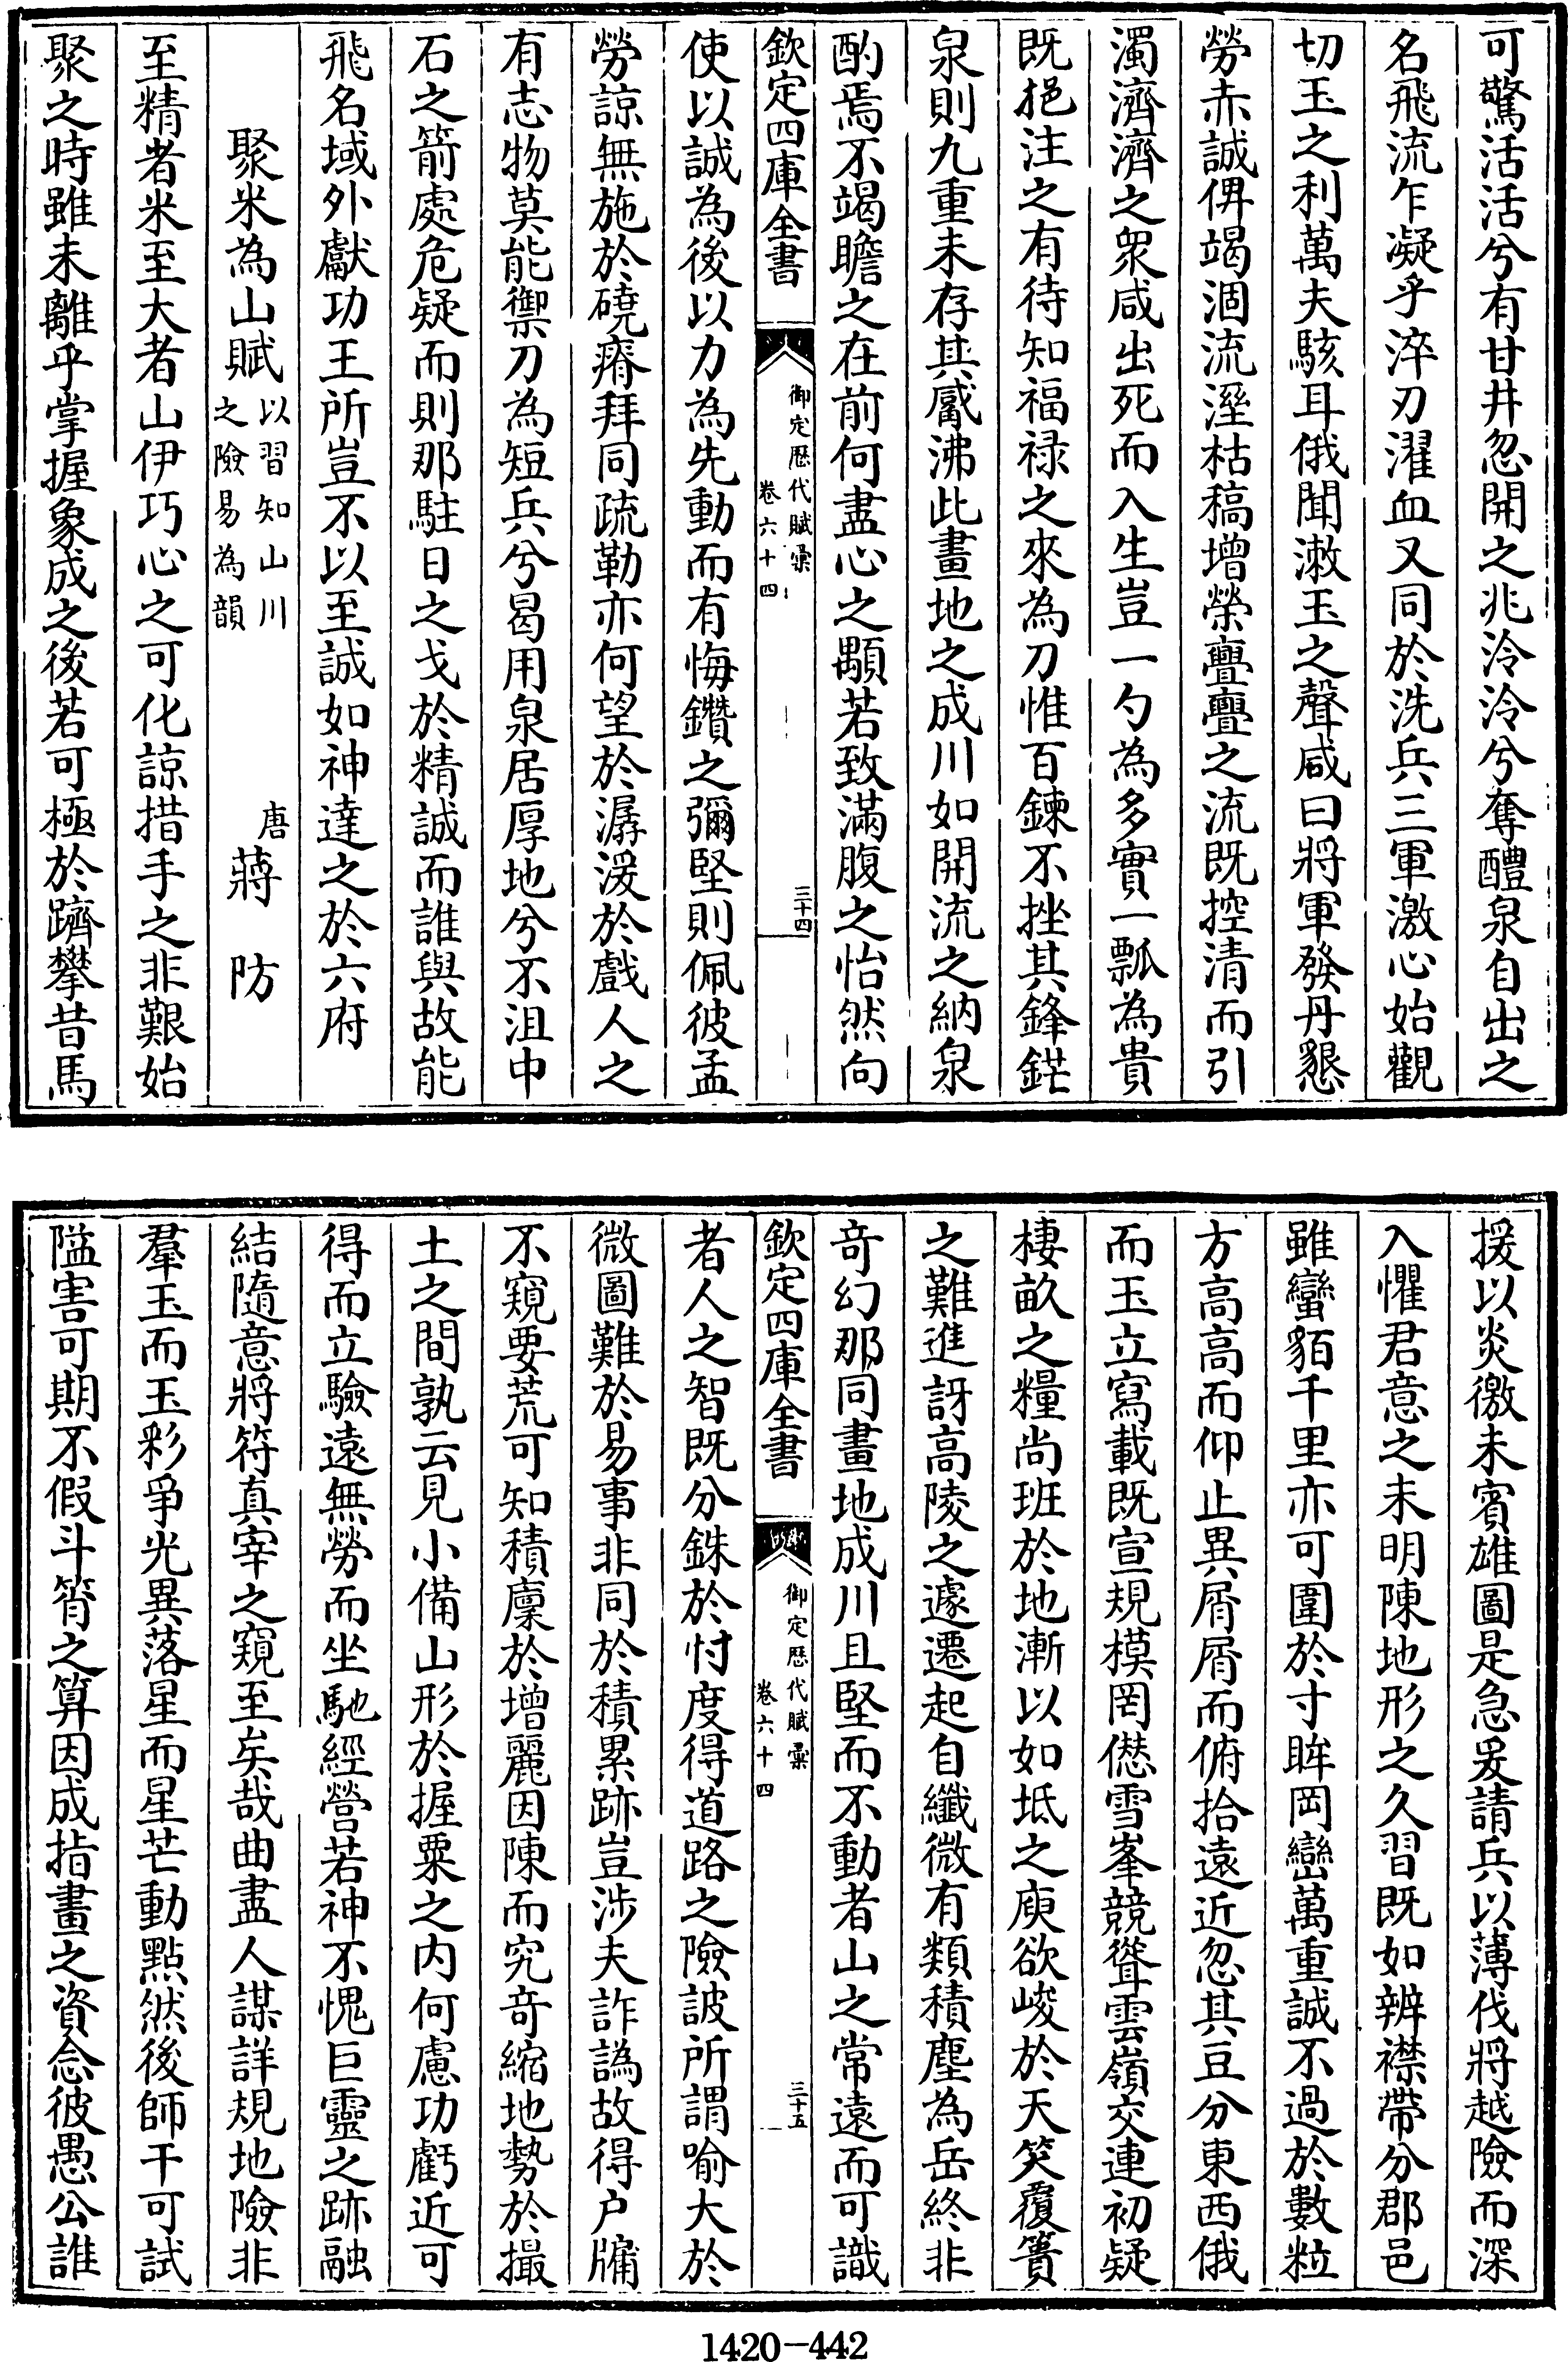 可驚活活兮有甘井忽開之兆泠泠兮奪醴泉自出之
名飛流乍凝乎淬刃濯血又同於洗兵三軍激心始觀
切玉之利萬夫駭耳俄聞漱玉之聲咸曰將軍發丹懇
勞赤誠俾竭涸流溼枯稿增榮亹亹之流既控清而引
濁濟濟之衆咸出死而入生豈一勺為多實一瓢為貴
既挹注之有待知福禄之來為刀惟百鍊不挫其鋒鋩
泉則九重未存其觱沸此畫地之成川如開流之納泉
酌焉不竭瞻之在前何盡心之顒若致滿腹之怡然向
欽定四庫全書
御定歴代賦彚
卷六十四
三十四
使以誠為後以力為先動而有悔鑽之彌堅則佩彼孟
勞諒無施於磽瘠拜同疏勒亦何望於潺湲於戲人之
有志物莫能禦刀為短兵兮曷用泉居厚地兮不沮中
石之箭處危疑而則那駐日之戈於精誠而誰與故能
飛名域外獻功王所豈不以至誠如神達之於六府
聚米為山賦
以習知山川
之險易為韻
唐
蔣防
至精者米至大者山伊巧心之可化諒措手之非艱始
聚之時雖未離乎掌握象成之後若可極於躋攀昔馬
援以炎徼未賓雄圖是急爰請兵以薄伐將越險而深
入懼君意之未明陳地形之久習既如辨襟帶分郡邑
雖蠻貊千里亦可圍於寸眸岡巒萬重誠不過於數粒
方高高而仰止異屑屑而俯拾遠近忽其豆分東西俄
而玉立寫載既宣規模罔僁雪峯競聳雲嶺交連初疑
棲畝之糧尚班於地漸以如坻之庾欲峻於天笑覆簣
之難進訝高陵之遽遷起自纖微有類積塵為岳終非
奇幻那同畫地成川且堅而不動者山之常遠而可識
欽定四庫全書
御定歴代賦彚
卷六十四
三十五
者人之智既分銖於忖度得道路之險詖所謂喻大於
微圖難於易事非同於積累跡豈涉夫詐譌故得户牖
不窺要荒可知積廩於增麗因陳而究奇縮地勢於撮
土之間孰云見小備山形於握粟之内何慮功虧近可
得而立驗遠無勞而坐馳經營若神不愧巨靈之跡融
結隨意將符真宰之窺至矣哉曲盡人謀詳規地險非
羣玉而玉彩爭光異落星而星芒動點然後師干可試
隘害可期不假斗筲之算因成指畫之資念彼愚公誰
1420-442